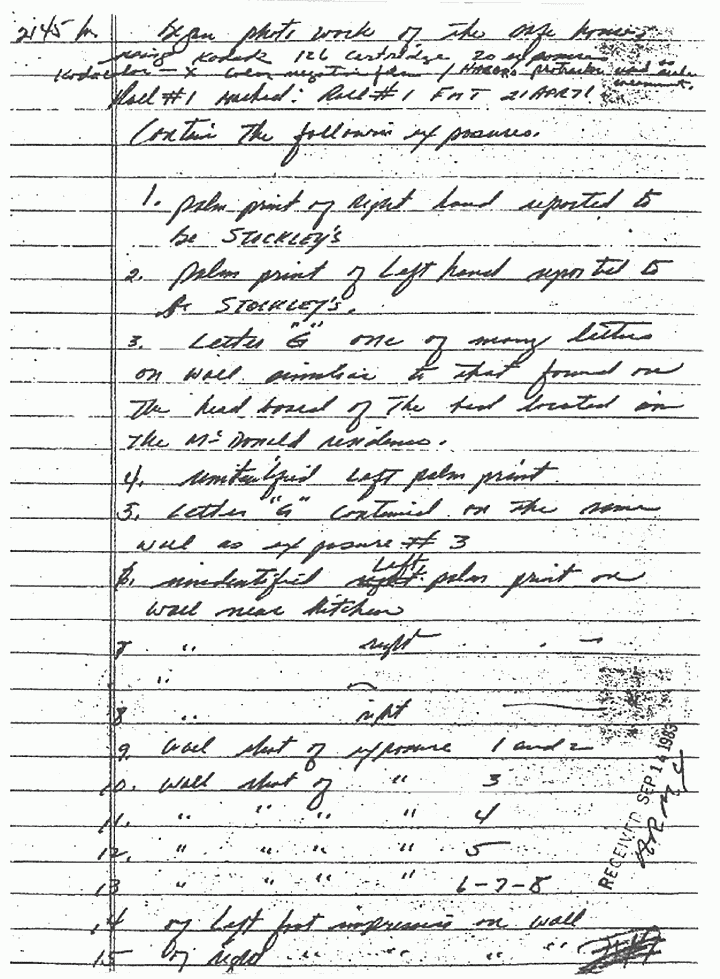 2145 hr Began photo work of the safe house
using Kodak 126 cartridge 20 exposures
Kodacolor - X color negative film / protractor used as
Roll #1 Marked: Roll #1 FMT 21 APR 71
Contain the following exposures.
1. palm print of right hand reported to
be STOCKLEY'S
2. palm print of Left hand reported to
be STOCKLEY'S.
3. Letter "G" one of many letters
on wall similiar to that found on
the head board of the bed located in
the McDonald residence.
4. unidentified Left palm print
5. Letter "G" contained on the same
wall as exposure # 3
6. unidentified right Left palm print on
wall near kitchen
7 " right " "
"
8 " right
9. Wall shot of exposure 1 and 2
10. Wall shot of " 3
11. " " " " 4
12. " " " " 5
13 " " " " 6-7-8
14 of Left foot impression on wall
15 of right " " " "
RECEIVED SEP 14 1983